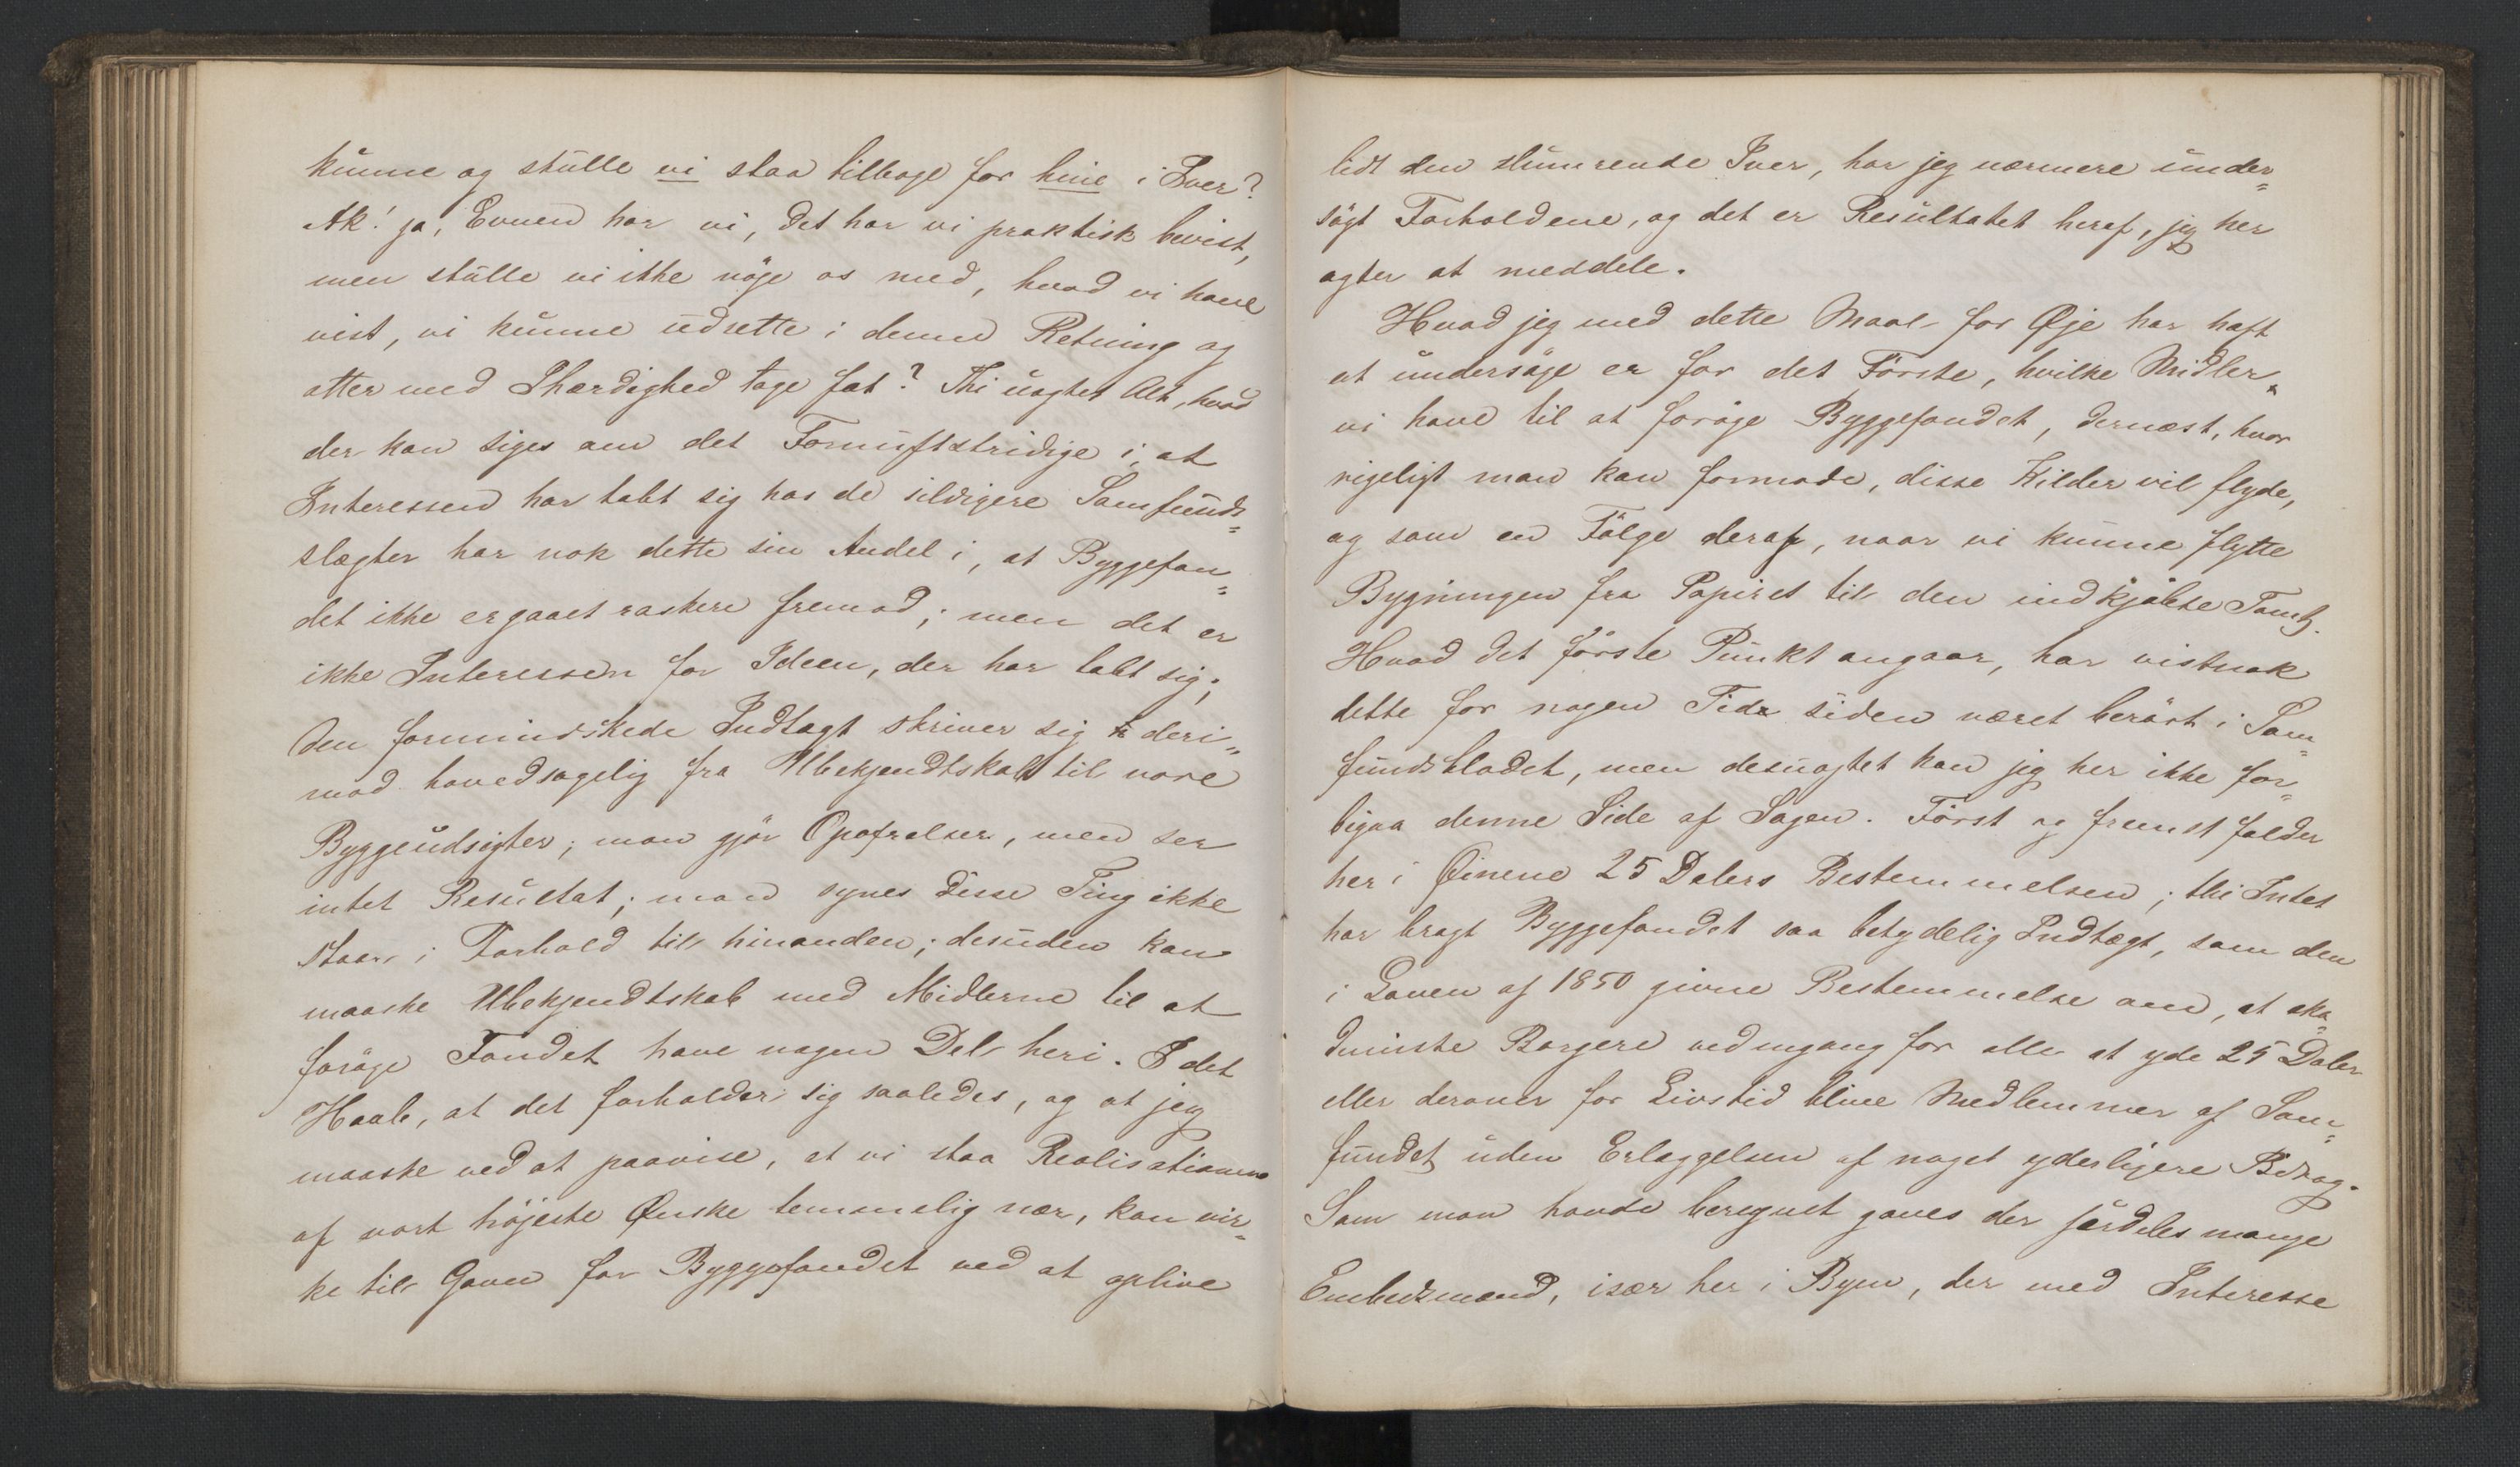 kunne og skulle vi staa tilbage for hine i Iver?
Ak! ja, Evnen har vi, det har vi praktisk bevist,
men skulle vi ikke nöje os med, hvad vi have
vist, vi kunne udrette i denne Retning og
atter med Ihærdighed tage fat? Thi uagtet Alt, hvad
der kan siges om det Fornuftstridige i, at
Interessen har tabt sig hos de sildigere Samfunds=
slægter har nok dette sin Andel i, at Byggefon=
det ikke er gaaet raskere fremad; men det er
ikke Interessen for Ideen, der har tabt sig;
den formindskede Indtægt skriver sig deri=
mod hovedsagelig fra Ubekjendtskab til vore
Byggeudsigter; man gjör Opofrelser, men ser
intet Resultat; man synes disse Ting ikke
staar i Forhold til hinanden; desuden kan
maaske Ubekjendtskab med Midlerne til at
foröge Fondet have nogen Del heri. I det
Haab, at det forholder sig saaledes, og at jeg
maaske ved at paavise, at vi staa Realisationen
af vort höjeste Ønske temmelig nær, kan vir=
ke til Gavn for Byggefondet ved at oplive
lidt den slumrende Iver, har jeg nærmere under=
sögt Forholdene, og det er Resultatet heraf, jeg her
agter at meddele.
Hvad jeg med dette Maal for Øje har haft
at undersöge er for det Förste, hvilke Midler
vi have til at foröge Byggefondet, dernæst, hvor
rigeligt man kan formode, disse Kilder vil flyde,
og som en Fölge deraf, naar vi kunne flytte
Bygningen fra Papiret til den indkjöbte Tomt.
Hvad det förste Punkt angaar, har vistnok
dette for nogen Tid siden været berört i Sam=
fundsbladet, men desuagtet kan jeg her ikke for=
bigaa denne Side af Sagen. Först og fremst falder
her i Øinene 25 Dalers Bestemmelsen; thi Intet
har bragt Byggefondet saa betydelig Indtægt, som den
i Loven af 1850 givne Bestemmelse om, at aka=
demiske Borgere ved engang for alle at yde 25 Daler
eller derover for Livstid blive Medlemmer af Sam=
fundet uden Erlæggelsen af noget yderligere Bidrag.
Som man havde beregnet gaves der særdeles mange
Embedsmænd, især her i Byen, der med Interesse